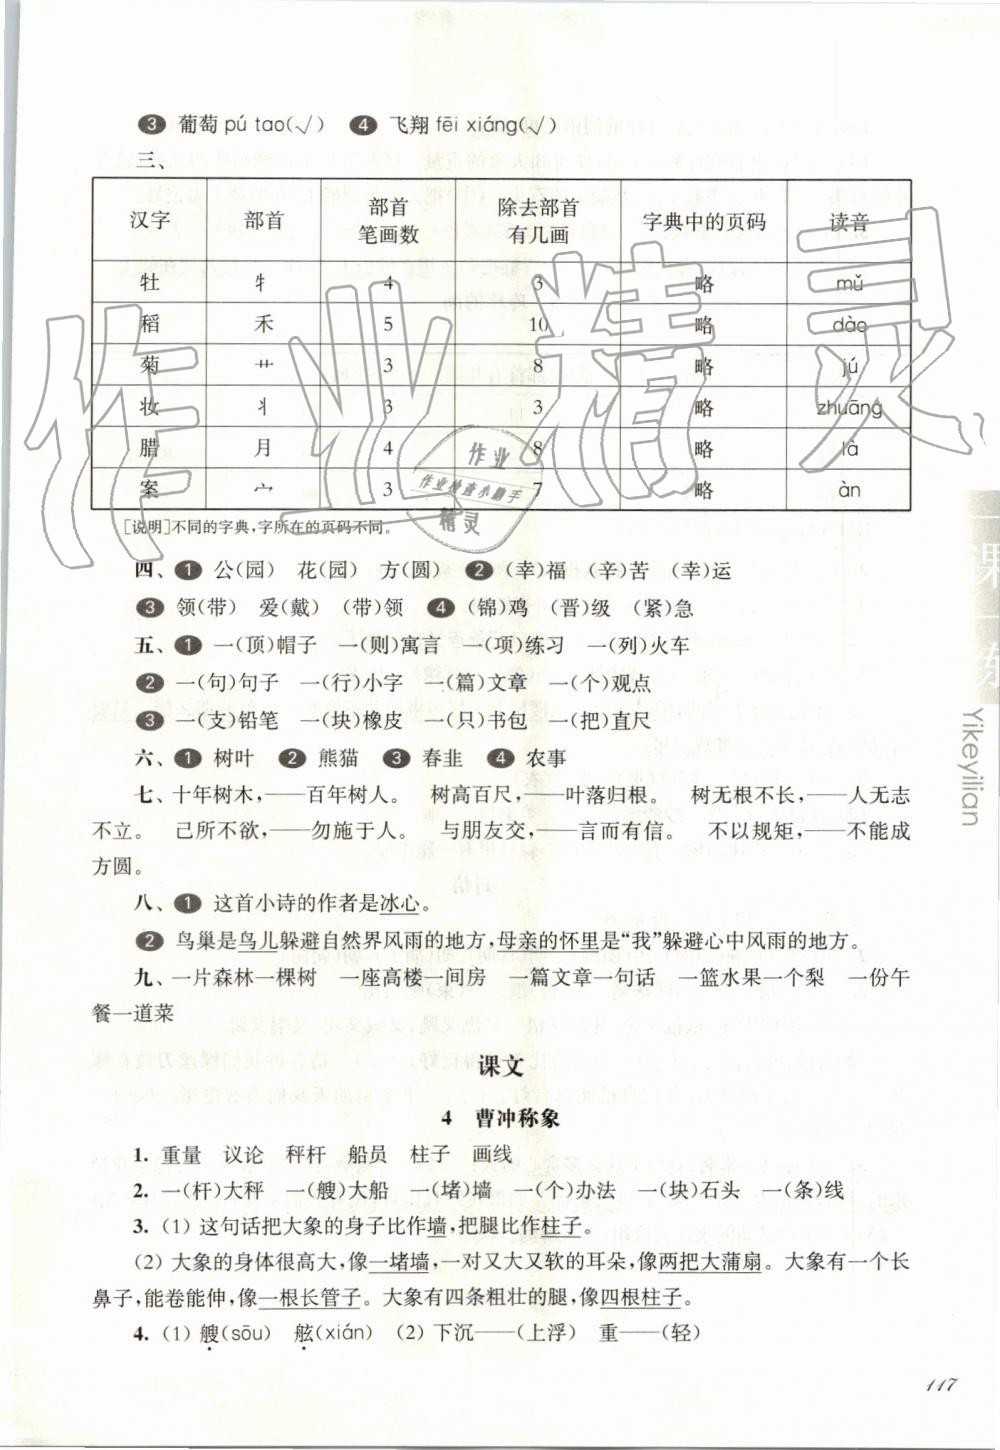 ③ 葡萄 pú tao(√) ④ 飞翔 fēi xiáng(√)
三、
汉字 部首 部首笔画数 除去部首有几画 字典中的页码 读音
牡 牜 4 3 略 mǔ
稻 禾 5 10 略 dào
菊 艹 3 8 略 jú
妆 丬 3 3 略 zhuāng
腊 月 4 8 略 là
案 宀 3 7 略 àn
[说明]不同的字典,字所在的页码不同。
四、① 公(园) 花(园) 方(圆) ② (幸)福 (辛)苦 (幸)运
③ 领(带) 爱(戴) (带)领 ④ (锦)鸡 (晋)级 (紧)急
五、① 一(顶)帽子 一(则)寓言 一(项)练习 一(列)火车
② 一(句)句子 一(行)小字 一(篇)文章 一(个)观点
③ 一(支)铅笔 一(块)橡皮 一(只)书包 一(把)直尺
六、① 树叶 ② 熊猫 ③ 春韭 ④ 农事
七、十年树木,——百年树人。 树高百尺,——叶落归根。 树无根不长,——人无志
不立。 己所不欲,——勿施于人。 与朋友交,——言而有信。 不以规矩,——不能成
方圆。
八、① 这首小诗的作者是冰心。
② 鸟巢是鸟儿躲避自然界风雨的地方,母亲的怀里是“我”躲避心中风雨的地方。
九、一片森林一棵树 一座高楼一间房 一篇文章一句话 一篮水果一个梨 一份午
餐一道菜
课文
4 曹冲称象
1. 重量 议论 秤杆 船员 柱子 画线
2. 一(杆)大秤 一(艘)大船 一(堵)墙 一(个)办法 一(块)石头 一(条)线
3. (1) 这句话把大象的身子比作墙,把腿比作柱子。
(2) 大象的身体很高大,像一堵墙,一对又大又软的耳朵,像两把大蒲扇。大象有一个长
鼻子,能卷能伸,像一根长管子。大象有四条粗壮的腿,像四根柱子。
4. (1) 艘(sōu) 舷(xián) (2) 下沉——(上浮) 重——(轻)
117
一课一练
Yikeyilian
作业精灵
作业
作业检查小助手
精灵